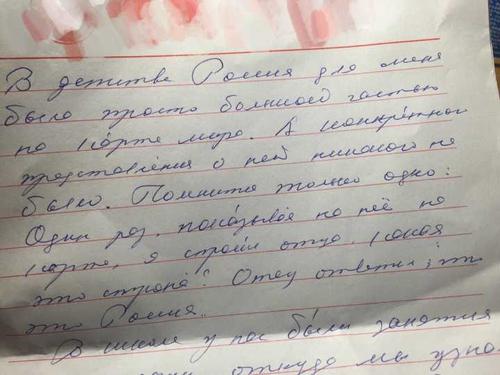 В детстве Россия для меня
было просто большой частью
на карте мира. А конкретного
представления о ней никакого не
было. Помнится только одно:
Один раз, показывая на неё на
карте, я спросил отца, какая
это страна? Отец ответил: "это
Россия.
В школе у нас были занятия
откуда мы узна